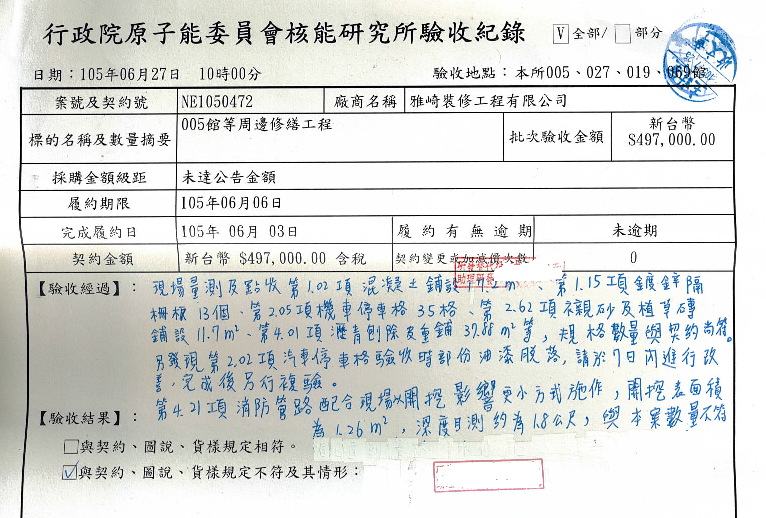 行政院原子能委員會核能研究所驗收紀錄 V全部/ 部分
日期：105年06月27日 10時00分 驗收地點：本所005、027、019、069館
案號及契約號 NE1050472 廠商名稱 雅崎裝修工程有限公司
標的名稱及數量摘要 005館等周邊修繕工程 批次驗收金額 新台幣 $497,000.00
採購金額級距 未達公告金額
履約期限 105年06月06日
完成履約日 105年 06月 03日 履約有無逾期 未逾期
契約金額 新台幣 $497,000.00 含稅 契約變更或加減價次數 0
【驗收經過】：現場量測及點收第1.02項混凝土鋪設17.2m²、第1.15項鍍鋅隔
柵欄13個、第2.05項機車停車格35格、第2.62項襯砂及植草磚
鋪設11.7m²、第4.01項瀝青刨除及重鋪37.88m²等，規格數量與契約尚符。
另發現第2.02項汽車停車格驗收時部份油漆脫落，請於7日內進行改
善，完成後另行複驗。
第4.21項消防管路配合現場以開挖影響更小方式施作，開挖表面積
為1.26m²，深度目測約為1.8公尺，與本案數量不符
【驗收結果】：
與契約、圖說、貨樣規定相符。
V與契約、圖說、貨樣規定不符及其情形：